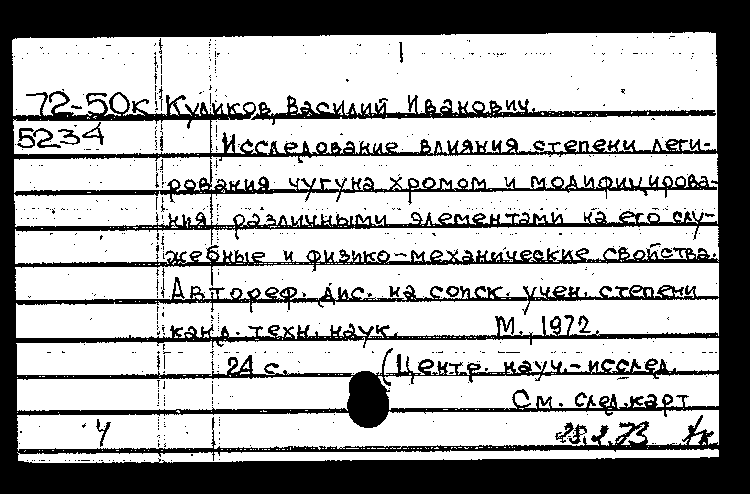 72-50к Куликов, Василий Иванович.
5234 Исследование влияния степени леги-
рования чугуна хромом и модифицирова-
ния различными элементами на его слу-
жебные и физико-механические свойства.
Автореф. дис. на соиск. учен. степени
канд. техн. наук. М., 1972.
24 с. (Центр. науч.-исслед.
См. след. карт
4